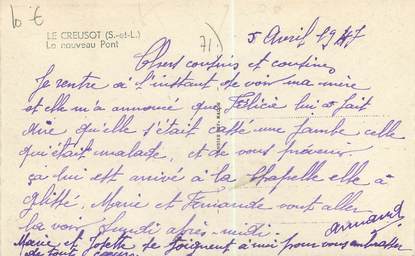 10 €
LE CREUSOT (S.-et-L.)
Le nouveau Pont
71
5 Avril 1947
Chers cousins et cousines
Je rentre à l'instant de voir ma mère
et elle m'a annoncé que Félicie lui a fait
dire qu'elle s'était cassé une jambe celle
qui était malade, et de vous prévenir
ça lui est arrivé à la Chapelle elle a
glissé, Marie et Fernande vont aller
la voir lundi après-midi.
Armand
Marie et Josette se joignent à moi pour vous embrasser
de tout cœur